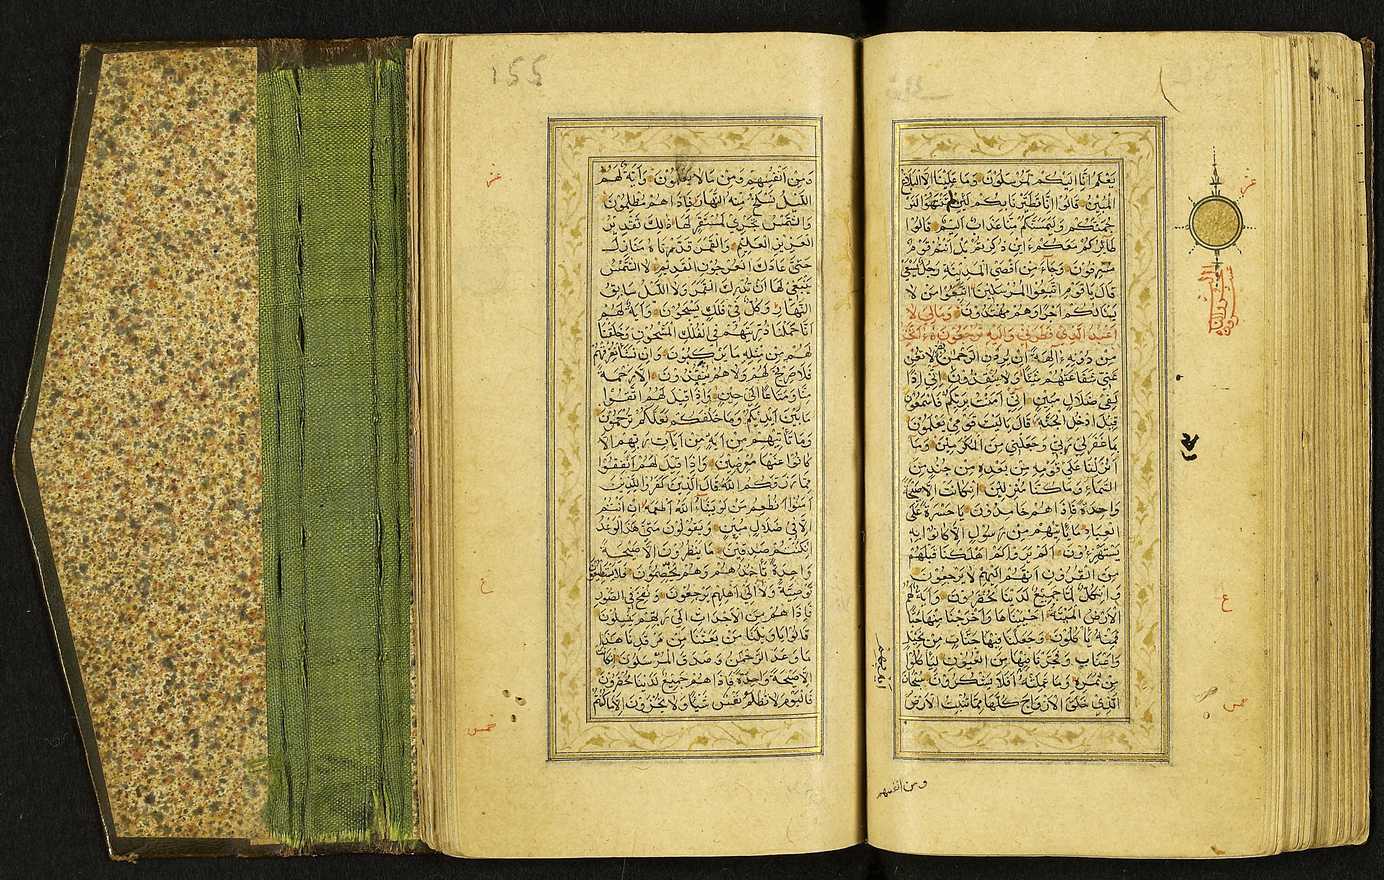 يعلم انا اليكم لمرسلون وما علينا الا البلاغ
المبين قالوا انا تطيرنا بكم لئن لم تنتهوا لنر
جمنكم وليمسنكم منا عذاب اليم قالوا
طائركم معكم ائن ذكرتم بل انتم قوم
مسرفون وجاء من اقصى المدينة رجل يسعى
قال يا قوم اتبعوا المرسلين اتبعوا من لا
يسئلكم اجرا وهم مهتدون ومالي لا
اعبد الذي فطرني واليه ترجعون ءاتخذ
من دونه الهة ان يردن الرحمن بضر لا تغن
عني شفاعتهم شيئا ولا ينقذون اني اذا
لفي ضلال مبين اني امنت بربكم فاسمعون
قيل ادخل الجنة قال يا ليت قومي يعلمون
بما غفر لي ربي وجعلني من المكرمين وما
انزلنا على قومه من بعده من جند من
السماء وما كنا منزلين ان كانت الا صيحة
واحدة فاذا هم خامدون يا حسرة على
العباد ما ياتيهم من رسول الا كانوا به
يستهزءون الم يروا كم اهلكنا قبلهم
من القرون انهم اليهم لا يرجعون
وان كل لما جميع لدينا محضرون واية لهم
الارض الميتة احييناها واخرجنا منها حبا
فمنه ياكلون وجعلنا فيها جنات من نخيل
واعناب وفجرنا فيها من العيون لياكلوا
من ثمره وما عملته افلا يشكرون سبحان
ايديهم
الذي خلق الازواج كلها مما تنبت الارض
ومن انفسهم
ع
١٥٥
ومن انفسهم ومما لا يعلمون واية لهم
الليل نسلخ منه النهار فاذا هم مظلمون
والشمس تجري لمستقر لها ذلك تقدير
العزيز العليم والقمر قدرناه منازل
حتى عاد كالعرجون القديم لا الشمس
ينبغي لها ان تدرك القمر ولا الليل سابق
النهار وكل في فلك يسبحون واية لهم
انا حملنا ذريتهم في الفلك المشحون وخلقنا
لهم من مثله ما يركبون وان نشا نغرقهم
فلا صريخ لهم ولا هم ينقذون الا رحمة
منا ومتاعا الى حين واذا قيل لهم اتقوا
ما بين ايديكم وما خلفكم لعلكم ترحمون
وما تاتيهم من اية من ايات ربهم الا
كانوا عنها معرضين واذا قيل لهم انفقوا
مما رزقكم الله قال الذين كفروا للذين
امنوا انطعم من لو يشاء الله اطعمه ان انتم
الا في ضلال مبين ويقولون متى هذا الوعد
ان كنتم صدقين ما ينظرون الا صيحة
واحدة تاخذهم وهم يخصمون فلا يستطيعون
توصية ولا الى اهلهم يرجعون ونفخ في الصور
فاذا هم من الاجداث الى ربهم ينسلون
قالوا يا ويلنا من بعثنا من مرقدنا هذا
ما وعد الرحمن وصدق المرسلون ان كانت
الا صيحة واحدة فاذا هم جميع لدينا محضرون
فاليوم لا تظلم نفس شيئا ولا تجزون الا ما كنتم
ع
خمس